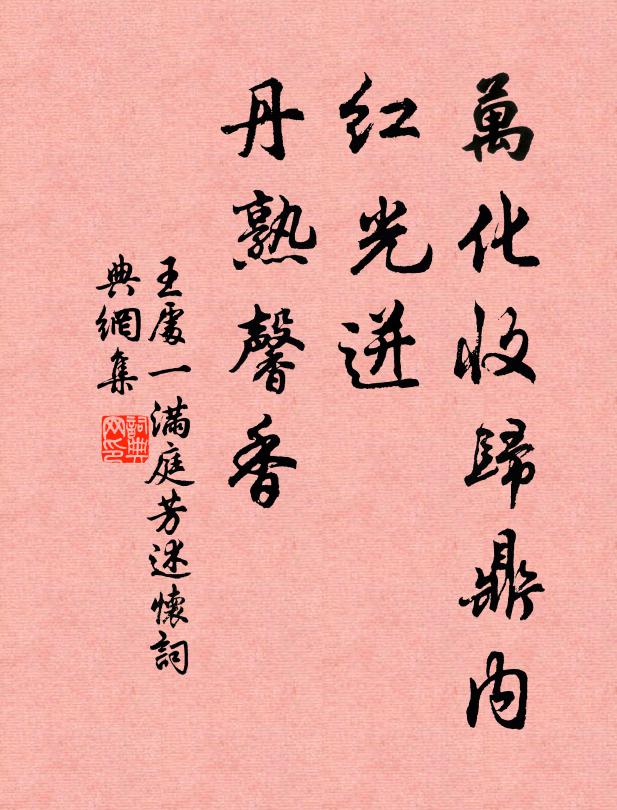 萬化收歸鼎内
红光迸
丹熟馨香
王處一满庭芳述懷詞
典網集
詞典网印